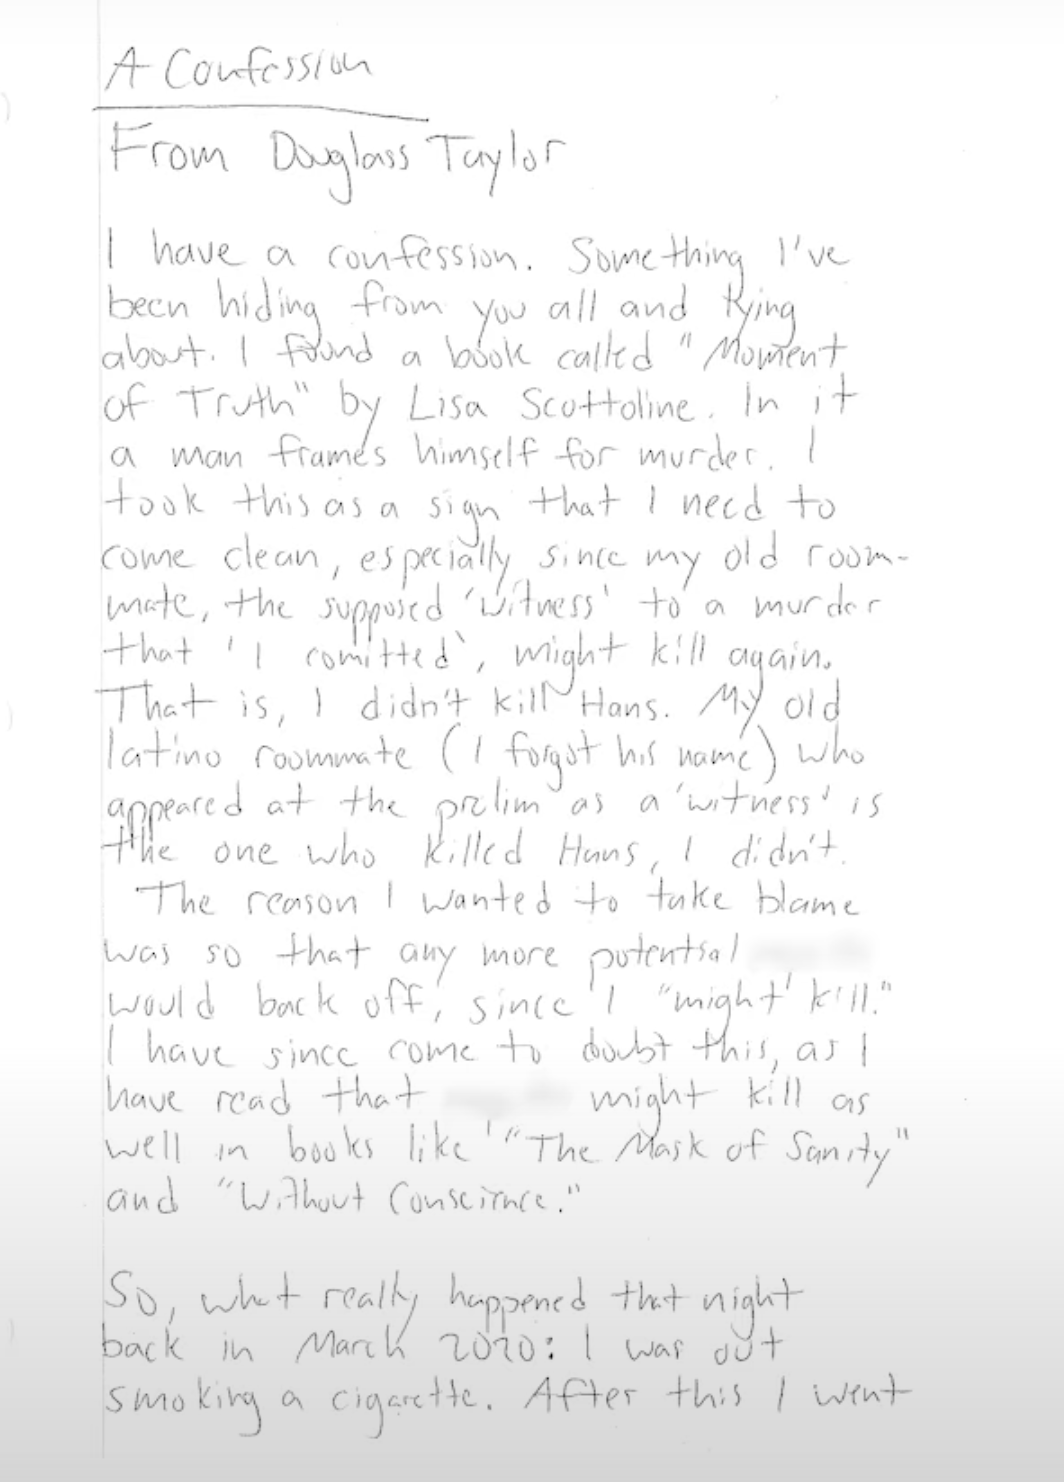 A Confession
From Douglass Taylor
I have a confession. Something I've
been hiding from you all and lying
about. I found a book called "Moment
of Truth" by Lisa Scottoline. In it
a man frames himself for murder. I
took this as a sign that I need to
come clean, especially since my old room-
mate, the supposed 'witness' to a murder
that 'I comitted', might kill again.
That is, I didn't kill Hans. My old
latino roommate (I forgot his name) who
appeared at the prelim as a 'witness' is
the one who killed Hans, I didn't.
The reason I wanted to take blame
was so that any more potential
would back off, since I "might kill."
I have since come to doubt this, as I
have read that might kill as
well in books like "The Mask of Sanity"
and "Without Conscience."
So, what really happened that night
back in March 2020: I was out
smoking a cigarette. After this I went